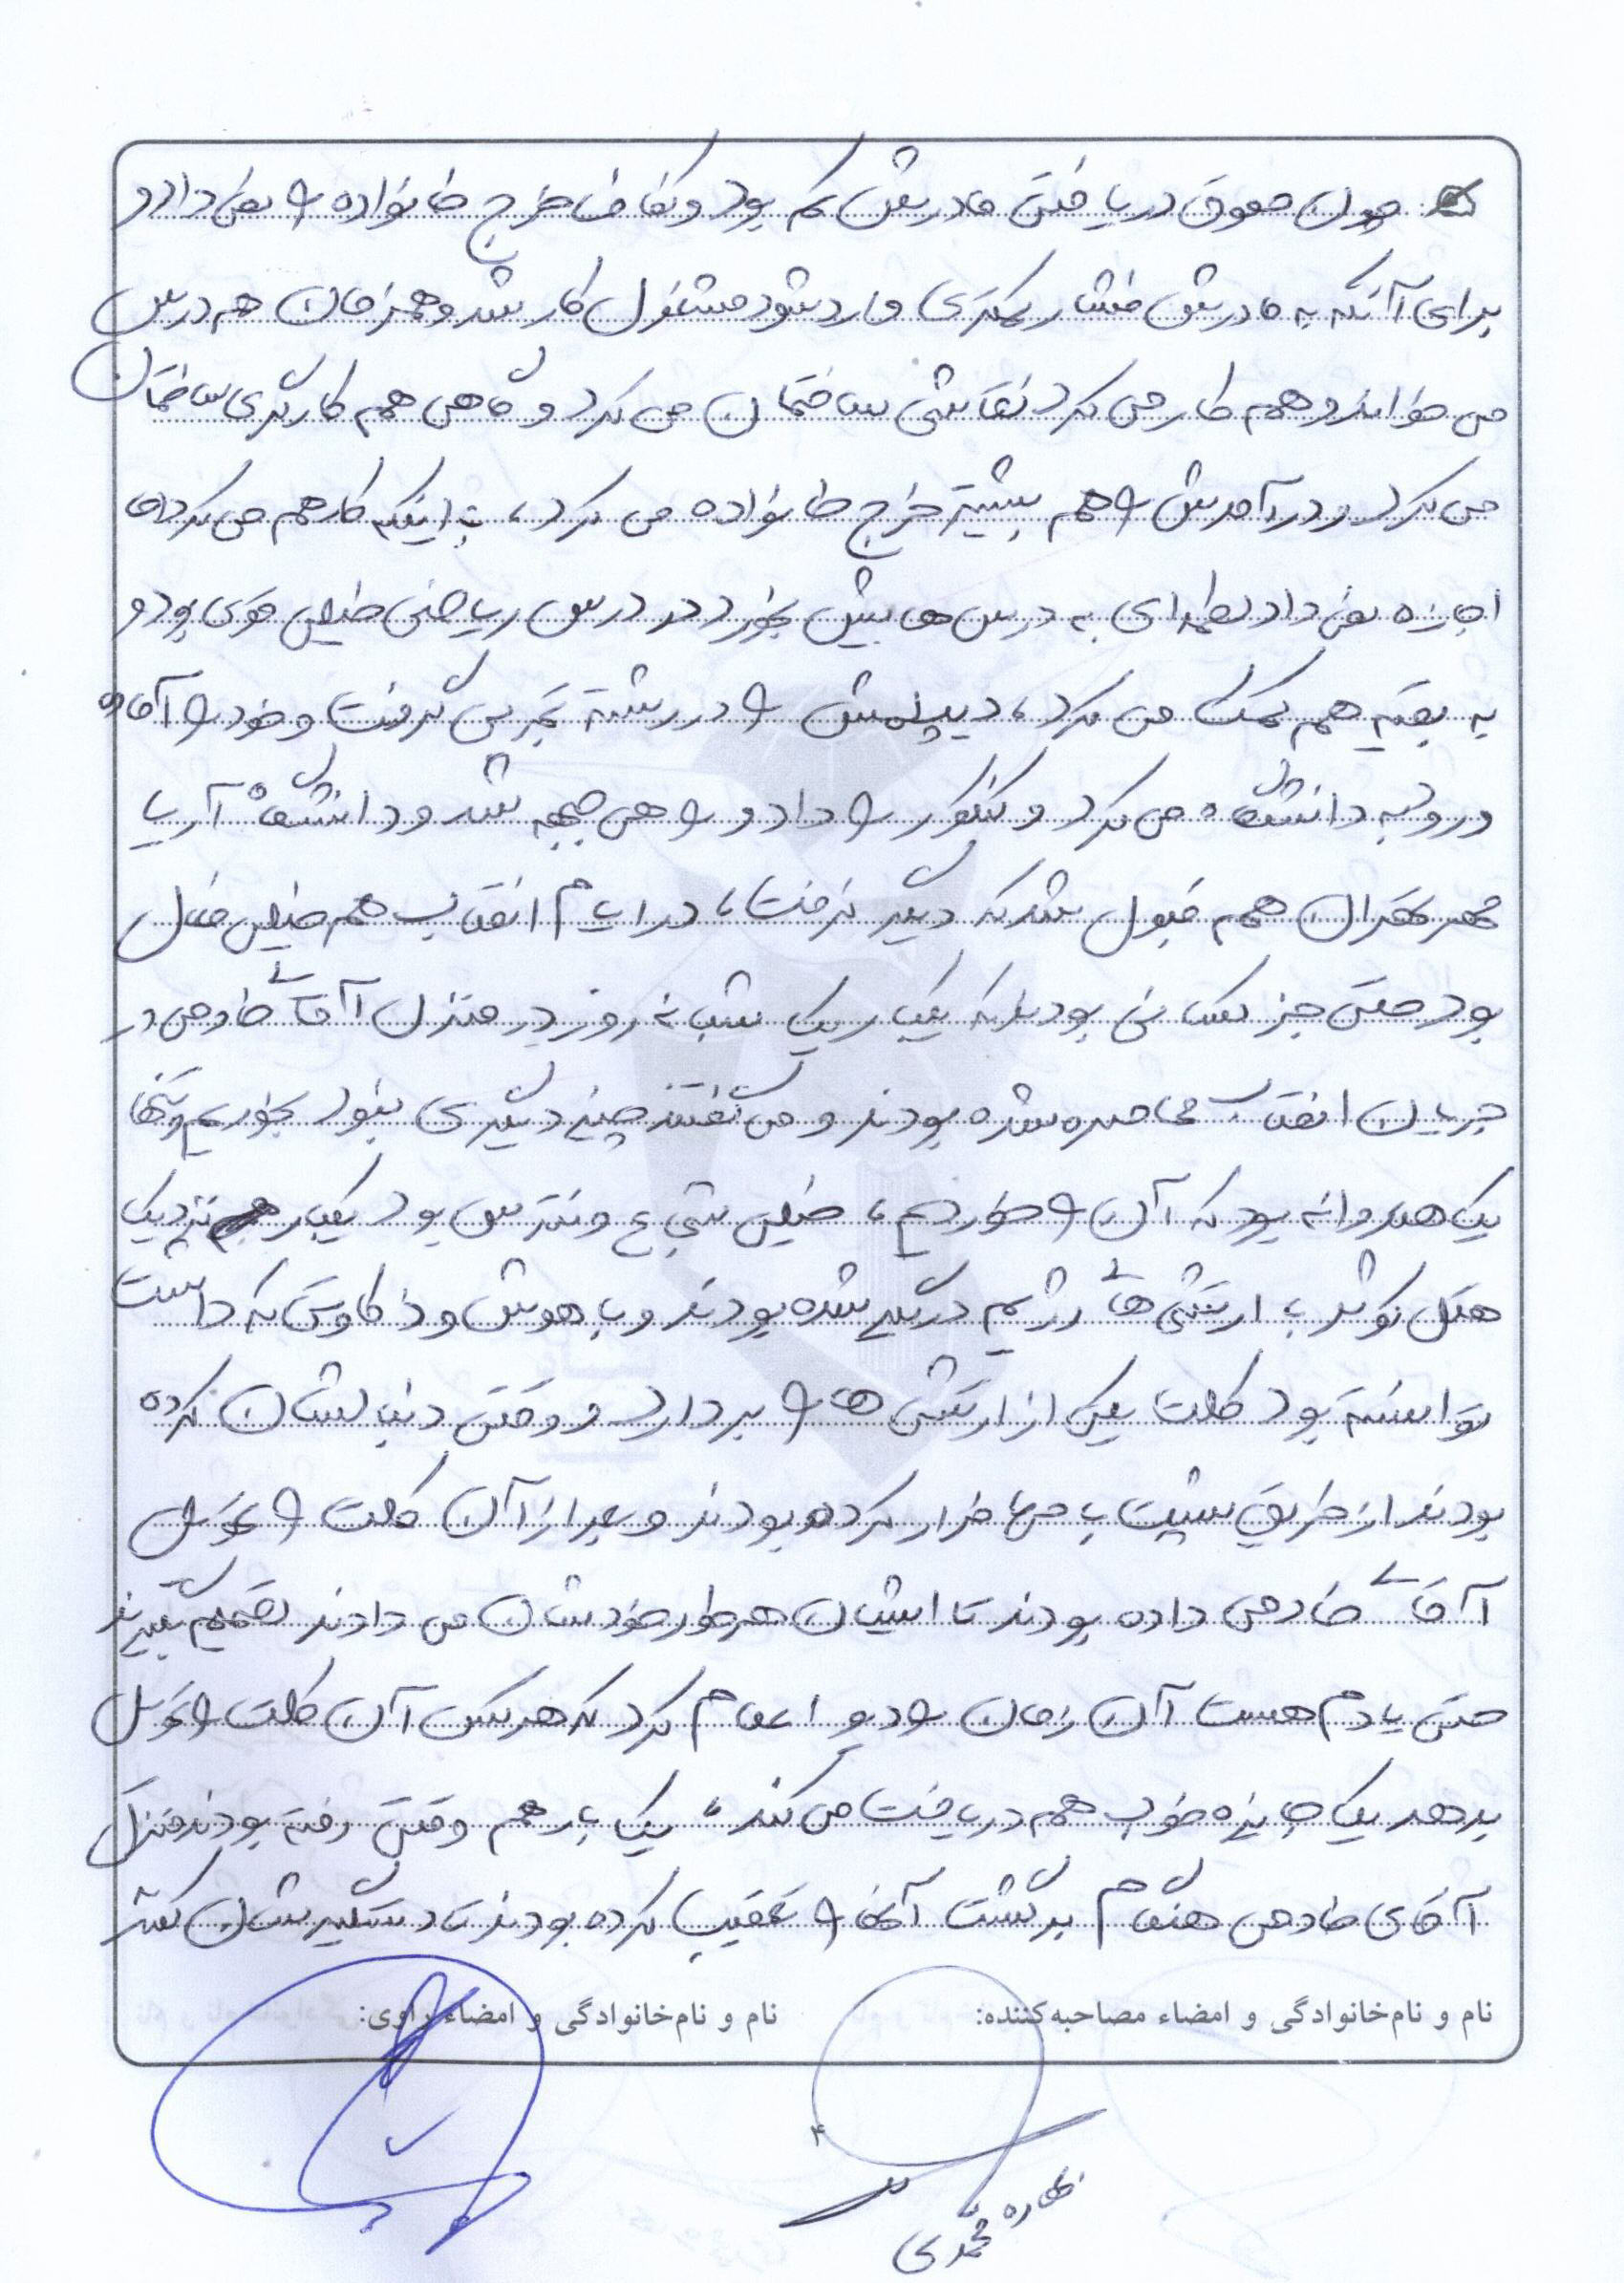 چون حقوق دریافتی مادرش کم بود و کفاف خرج خانواده را نمی‌داد و
برای آنکه به مادرش فشار کمتری وارد شود مشغول کار شد و همزمان هم درس
می خواند و هم کار می کرد نقاشی ساختمان می کرد و گاهی هم کارگری ساختمان
می کرد و درآمدش را هم بیشتر خرج خانواده می کرد، با اینکه کار هم می کرد اما
اجازه نمی داد لطمه‌ای به درس هایش بخورد در درس ریاضی خیلی قوی بود و
به بقیه هم کمک می کرد، دیپلمش را در رشته تجربی گرفت و خود را آماده
ورود به دانشگاه می کرد و کنکور را داد و راهی جبهه شد و دانشگاه آریا
مهر تهران هم قبول شد که دیگر نرفت، در ایام انقلاب هم خیلی فعال
بود حتی جز کسانی بود که یکبار یک شبانه روز در منزل آقای خادمی در
جریان انقلاب محاصره شده بودند و می گفتند چیز دیگری نبود بخوریم و تنها
یک هندوانه بود که آن را خوردیم، خیلی شجاع و نترس بود یکبار هم نزدیک
هتل کوثر با ارتشی های رژیم درگیر شده بودند و با هوش و ذکاوتی که داشت
توانسته بود کلت یکی از ارتشی ها را بردارد و وقتی دنبالشان کرده
بودند از طریق پشت بام ها فرار کرده بودند و بعد از آن کلت را تحویل
آقای خادمی داده بودند تا ایشان هر طور خودشان می دادند تصمیم بگیرند
حتی یادم هست آن زمان رادیو اعلام کرد که هر کس آن کلت را تحویل
بدهد یک جایزه خوب هم دریافت می کند، یک بار هم وقتی رفته بودند منزل
آقای خادمی هنگام برگشت آنها را تعقیب کرده بودند تا دستگیرشان کنند
نام و نام‌خانوادگی و امضاء مصاحبه‌کننده: نام و نام‌خانوادگی و امضاء راوی:
۴
محمدی